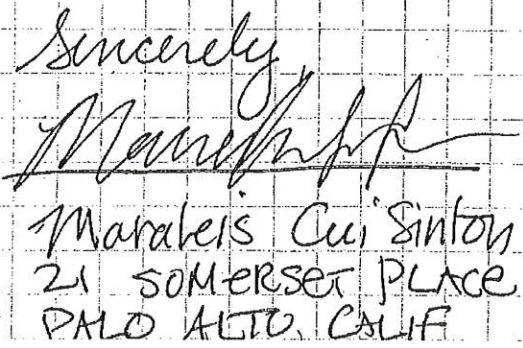 Sincerely,
Maraleis Cui Sinton
21 SOMERSET PLACE
PALO ALTO, CALIF